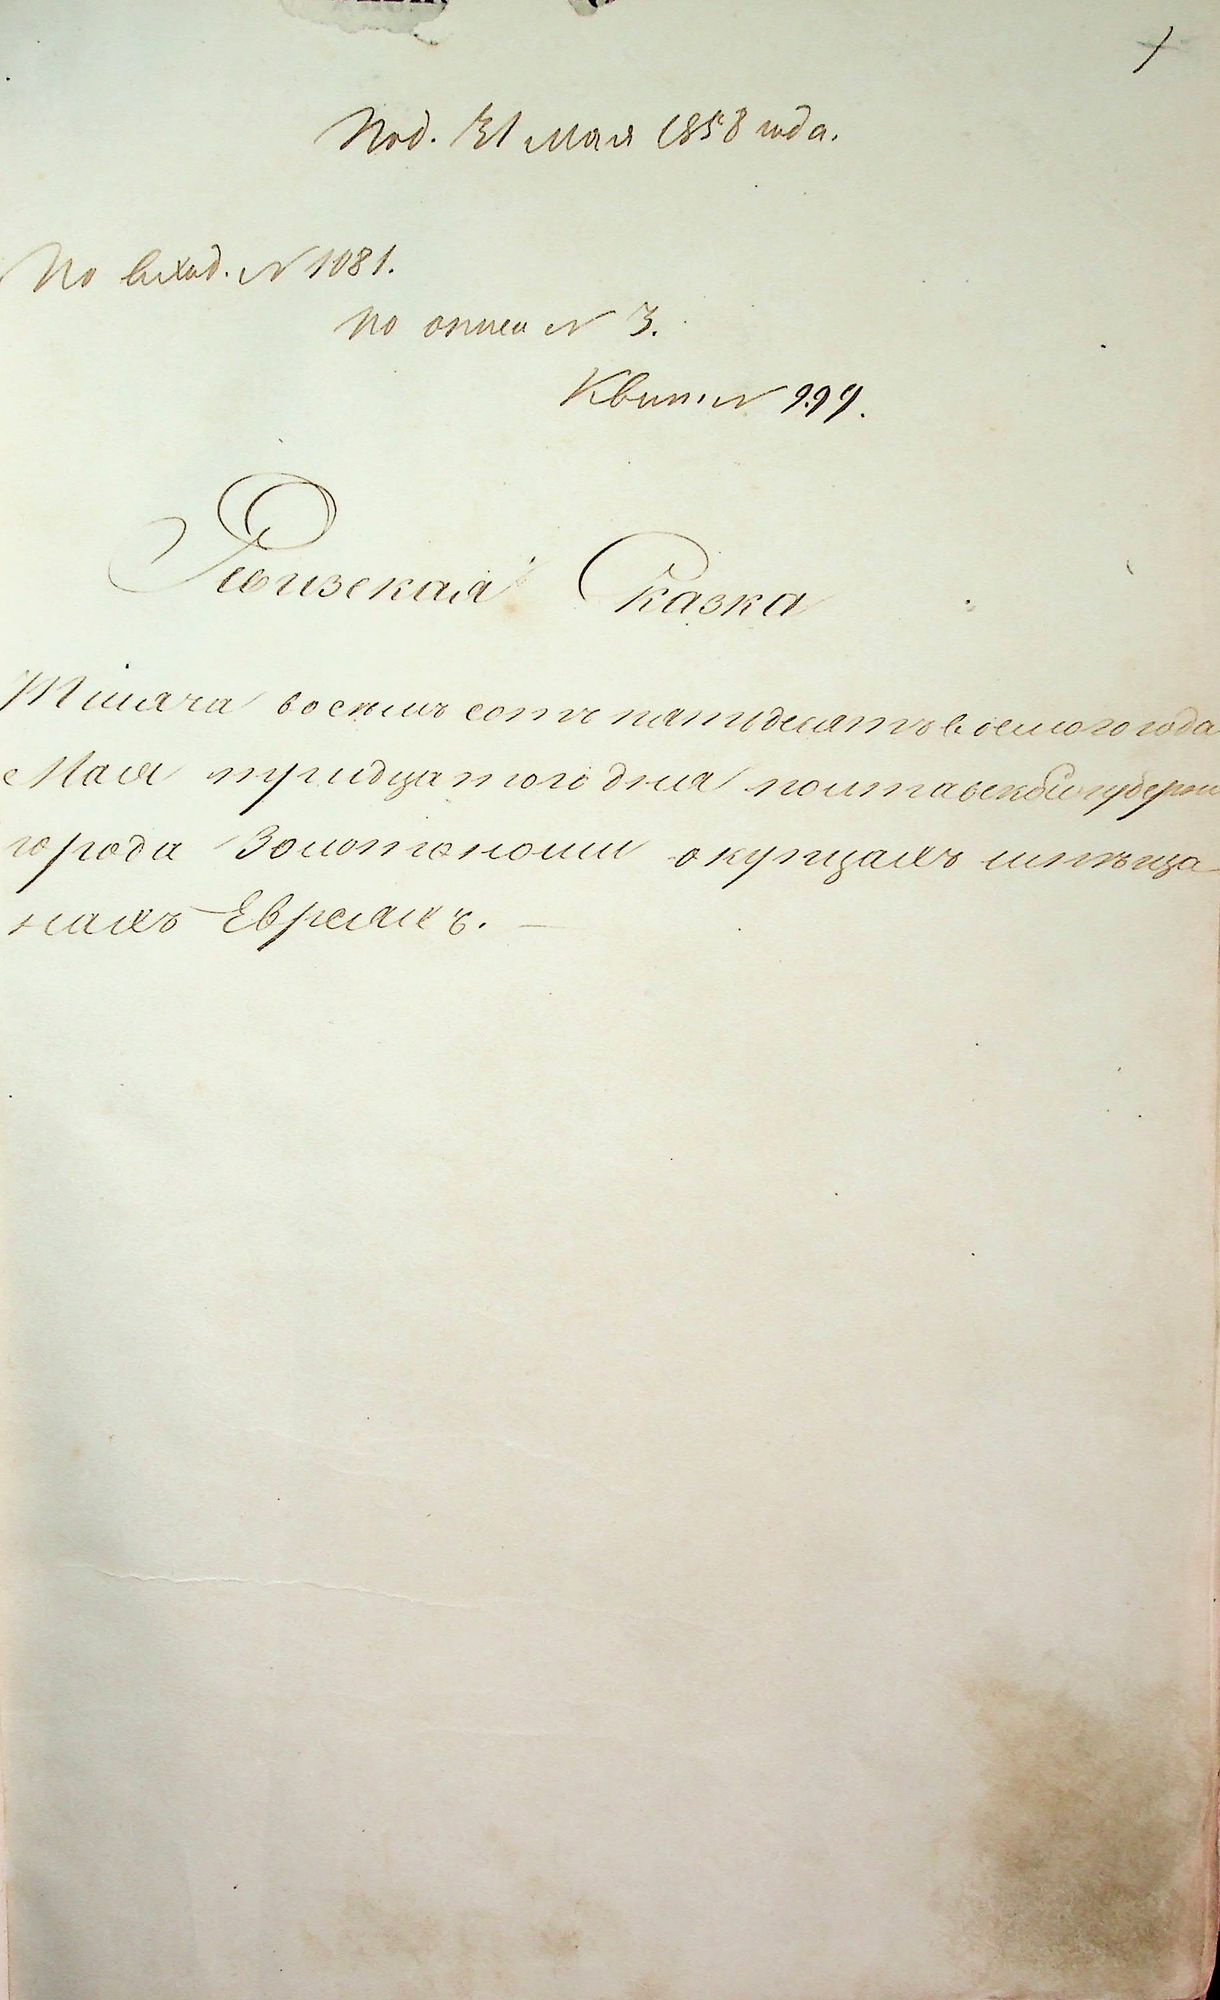 1
Под. 31 мая 1858 года.
По вход. № 1081.
по описи № 3.
Квит. № 999.
Ревизская Сказка
Тисяча восемъ сотъ пятьдесятъ восмого года
Мая тридцатого дня полтавской губернии
города Золотоноши о купцахъ и мѣща
нахъ Евреяхъ. —